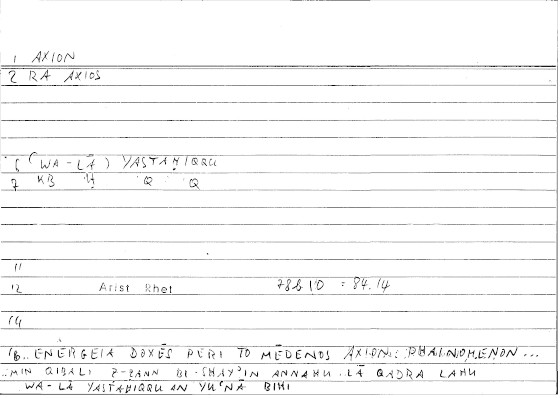 1 AXION
2 RA AXIOS
6 (WA-LĀ) YASTAḤIQQU
7 KB Ḥ Q Q
11
12 Arist Rhet 78b10 = 84.14
14
16.. ENERGEIA DOXĒS PERI TO MĒDENOS AXION.: PHAINOMENON...
:MIN QIBALI Ẓ-ẒANN BI-SHAY'IN ANNAHU LĀ QADRA LAHU
WA-LĀ YASTAḤIQQU AN YUʿNĀ BIHI